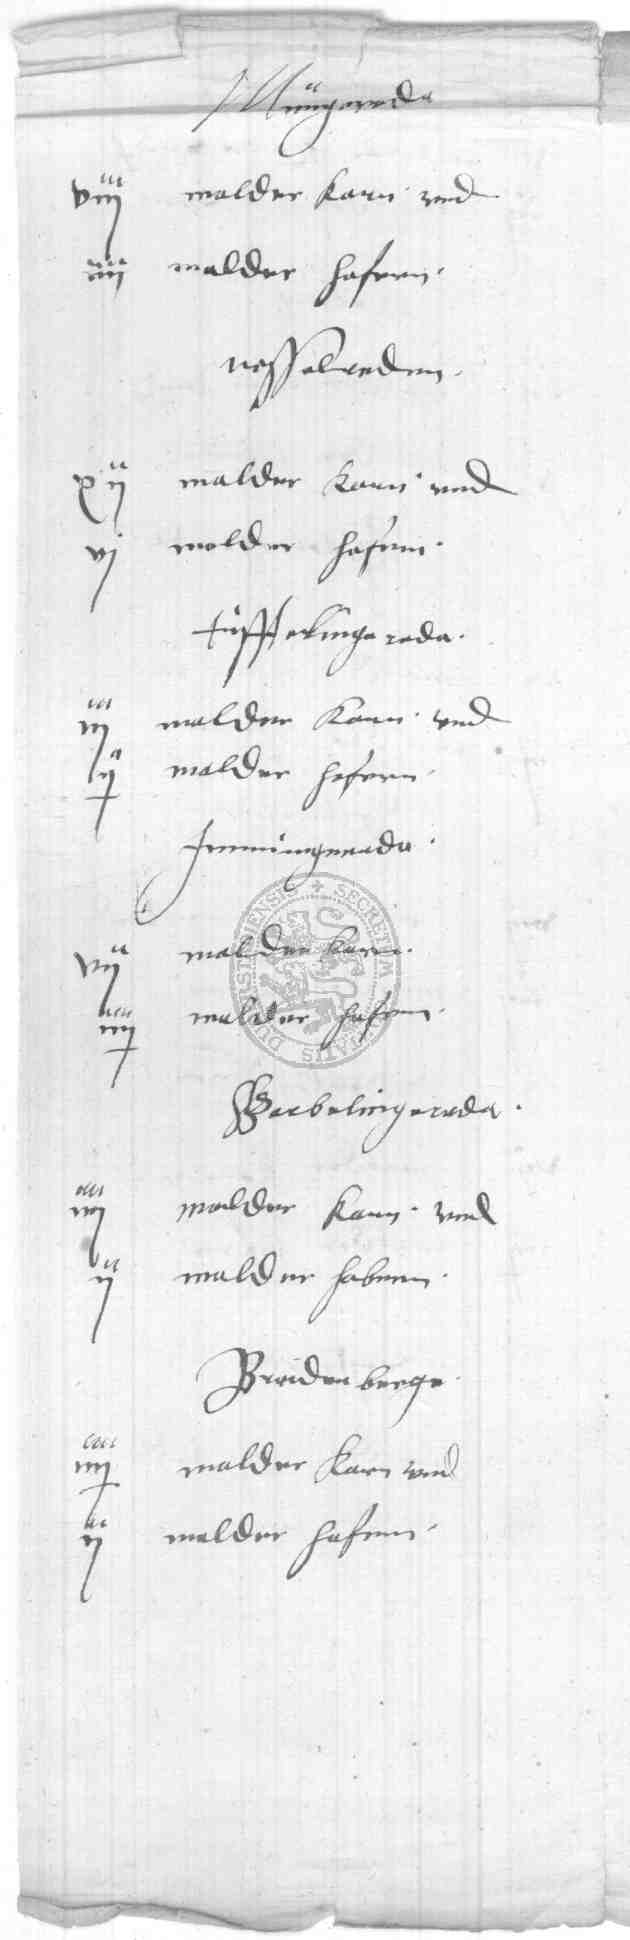 Mingerode
viij malder korn vnd
iiij malder hafern
nesselreden
xij malder korn vnd
vj malder hafern
tüfftelingerode
iij malder korn vnd
ij malder hafern
Immingerode
vij malder korn
iiij malder hafern
Werbelingerode
iiij malder korn vnd
ij malder habern
Breidenberge
iiij malder korn vnd
ij malder hafern
SECRETUM DUDERSTADIENSIS